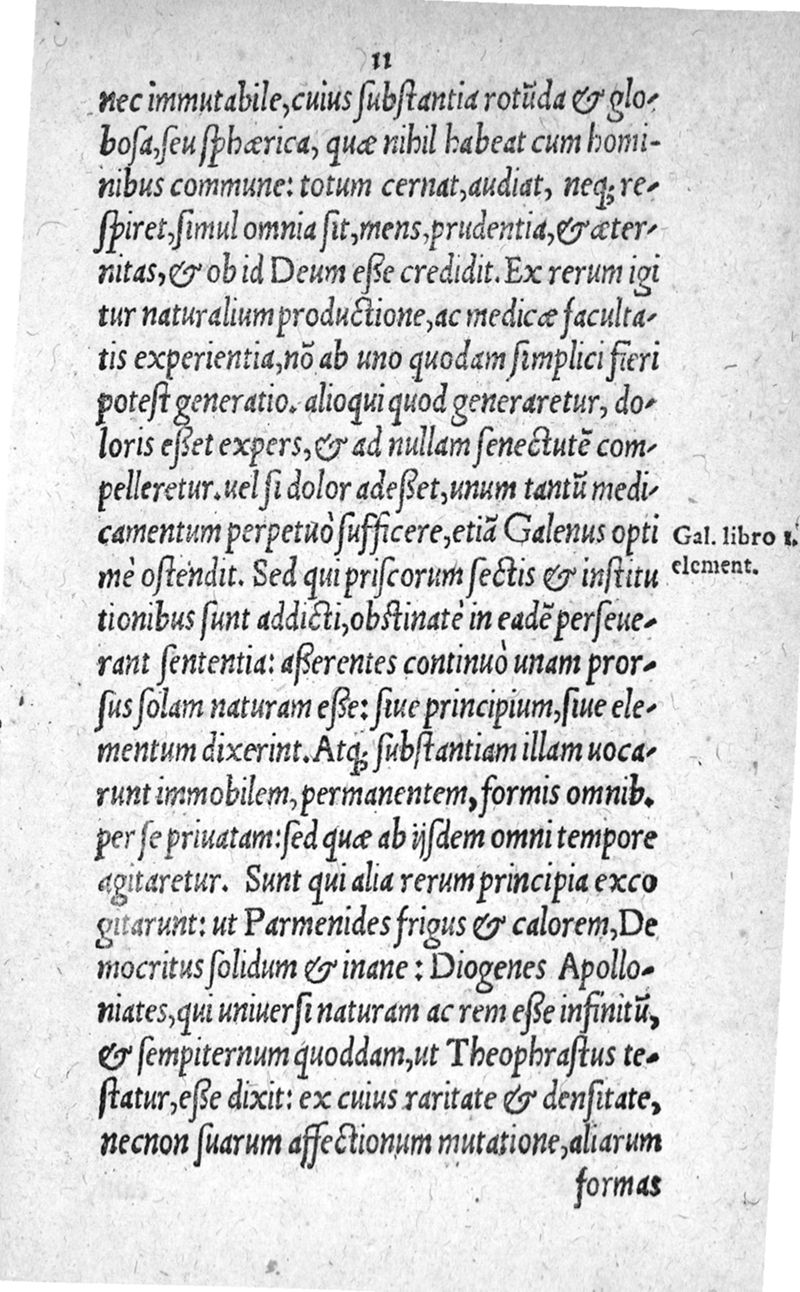 11
nec immutabile,cuius ſubſtantia rotũda & glo-
boſa,ſeu ſphærica, quæ nihil habeat cum homi-
nibus commune: totum cernat,audiat, neq; re-
ſpiret,ſimul omnia ſit,mens,prudentia,& æter-
nitas,& ob id Deum eſſe credidit. Ex rerum igi
tur naturalium productione,ac medicæ faculta-
tis experientia,nõ ab uno quodam ſimplici fieri
poteſt generatio. alioqui quod generaretur, do-
loris eſſet expers, & ad nullam ſenectutẽ com-
pelleretur. uel ſi dolor adeſſet,unum tantũ medi-
camentum perpetuò ſufficere,etiã Galenus opti
mè oſtendit. Sed qui priſcorum ſectis & inſtitu
tionibus ſunt addicti,obſtinatè in eadẽ perſeue-
rant ſententia: aſſerentes continuò unam pror-
ſus ſolam naturam eſſe: ſiue principium,ſiue ele-
mentum dixerint. Atq; ſubſtantiam illam uoca-
runt immobilem, permanentem, formis omnib.
per ſe priuatam: ſed quæ ab ijſdem omni tempore
agitaretur. Sunt qui alia rerum principia exco
gitarunt: ut Parmenides frigus & calorem,De
mocritus ſolidum & inane: Diogenes Apollo-
niates,qui uniuerſi naturam ac rem eſſe infinitũ,
& ſempiternum quoddam,ut Theophraſtus te-
ſtatur,eſſe dixit: ex cuius raritate & denſitate,
necnon ſuarum affectionum mutatione,aliarum
formas
Gal. libro 1.
element.